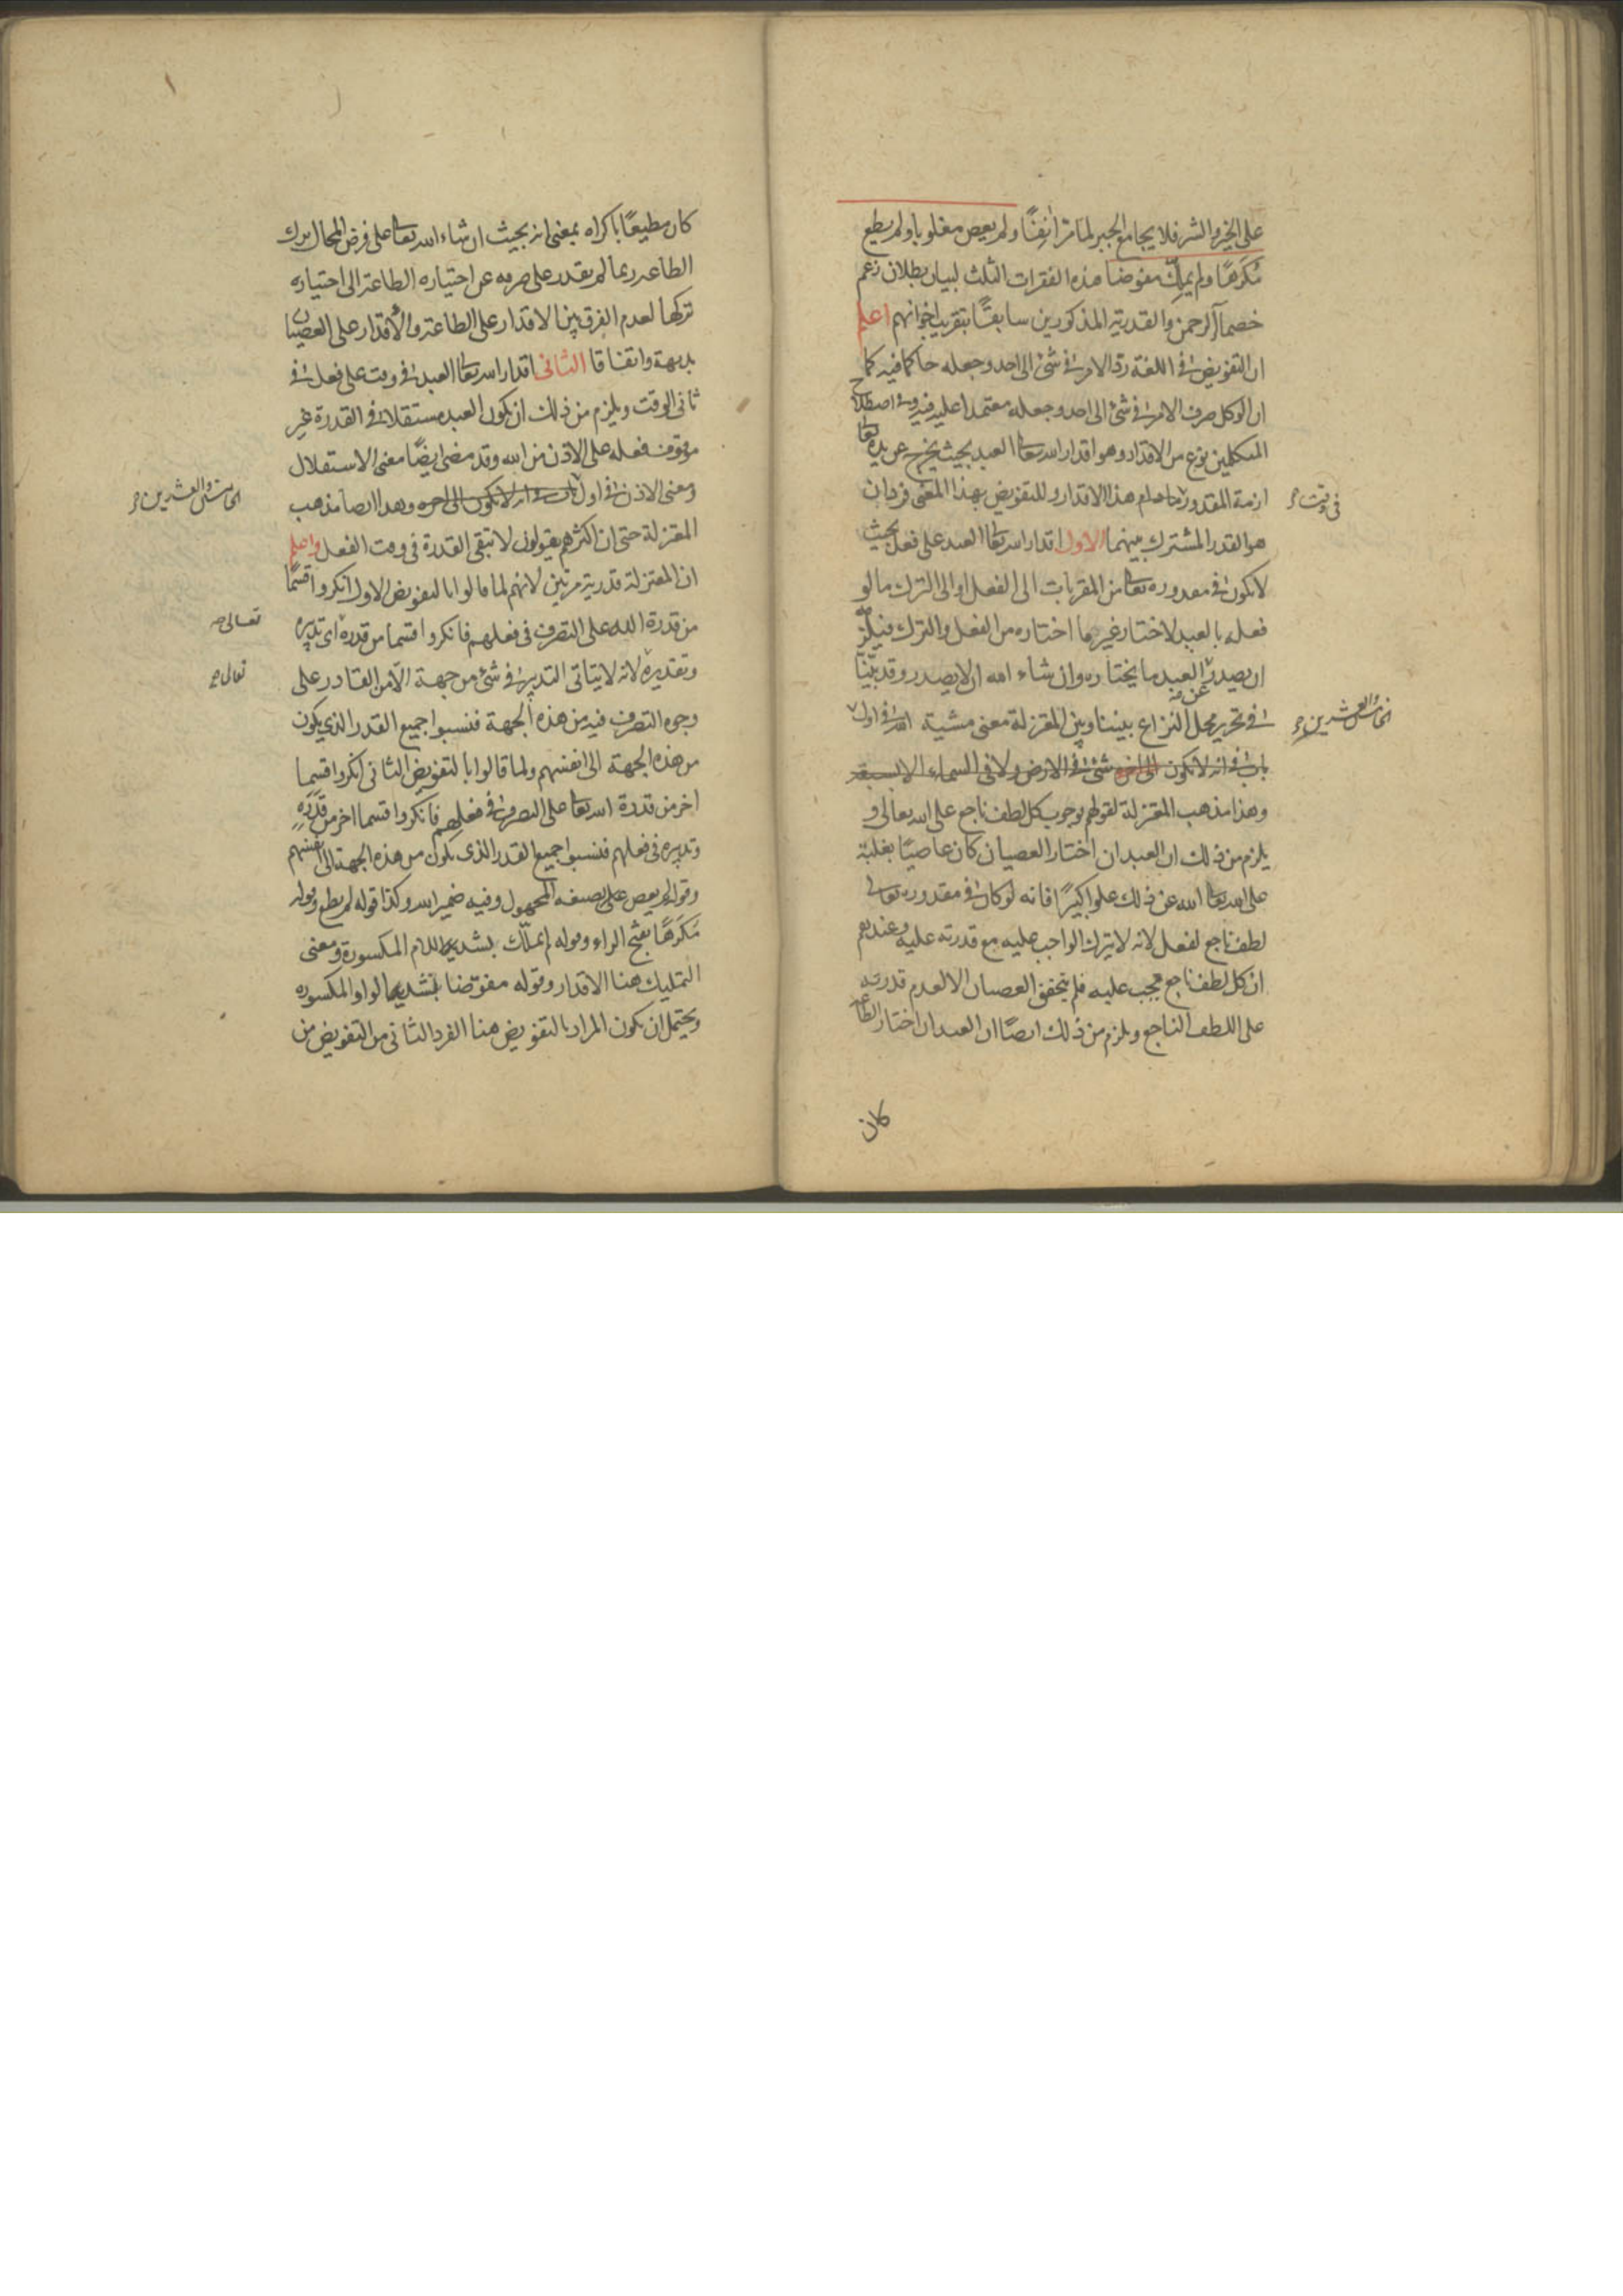 على الخير والشر فلا يجامع الجبر لما مر انفًا ولم يعص مغلوبا ولم يطع
مُكرَهًا ولم يملِّك مفوضا هذه الفقرات الثلث لبيان بطلان زعم
خصماء الرحمن والقدرية المذكورين سابقًا بتقريب اخوانهم اعلم
ان التفويض في اللغة رد الامر في شئ الى احد وجعله حاكما فيه كما
ان التوكل صرف الامر في شئ الى احد وجعله معتمدا عليه فيه وفي اصطلاح
المتكلمين نوع من الاقدار وهو اقدار الله تعا العبد بحيث يخرج عن يده تعا
ازمة المقدور هذا الاقدار وللتفويض بهذا المعنى فردان
في وقت
هو القدر المشترك بينهما الاول اقدار الله تعا العبد على فعل بحيث
لا يكون في مقدوره تعا من المقربات الى الفعل او الى الترك ما لو
فعله بالعبد لاختار غير ما اختاره من الفعل والترك فيلزمه
ان يصدر عن العبد ما يختاره وان شاء الله ان لا يصدر وقد بيّنّا
في تحرير محل النزاع بيننا وبين المعتزلة معنى مشية الله في اول
الخامس والعشرين
باب في انه لا يكون شئ في الارض ولا في السماء الا بسبعة
وهذا مذهب المعتزلة لقولهم بوجوب كل لطف ناجع على الله تعالى و
يلزم من ذلك ان العبد ان اختار العصيان كان عاصيًا بغلبة
على الله تعا الله عن ذلك علوا كبيرًا فانه لو كان في مقدوره تعالى
لطف ناجع لفعل لانه لا يترك الواجب عليه مع قدرته عليه وعندهم
ان كل لطف ناجع يجب عليه فلم يتحقق العصيان الا لعدم قدرته
على اللطف الناجع ويلزم من ذلك ايضًا ان العبد ان اختار الطاعة
كان
كان مطيعًا باكراه بمعنى انه بحيث ان شاء الله تعا على فرض المحال ترك
الطاعة ربما لم يقدر على صرفه عن اختياره الطاعة الى اختياره
تركها لعدم الفرق بين الاقدار على الطاعة والاقدار على العصيان
بديهة واتفاقا الثانى اقدار الله تعا العبد في وقت على فعل في
ثانى الوقت ويلزم من ذلك ان يكون العبد مستقلا في القدرة غير
موقوف فعله على الاذن من الله وقد مضى ايضًا معنى الاستقلال
ومعنى الاذن في اول باب في انه لا يكون الى اخره وهذا ايضا مذهب
الخامس والعشرين
المعتزلة حتى ان اكثرهم يقولون لا تبقى القدرة في وقت الفعل واعلم
ان المعتزلة قدرية مرتين لانهم لما قالوا بالتفويض الاول انكروا قسمًا
من قدرة الله على التصرف في فعلهم فانكروا قسما من قدره اى تدبيره
تعالى
وتقديره لانه لا يتاتى التدبير في شئ من جهة الا من القادر على
تعالى
وجوه التصرف فيه من هذه الجهة فنسبوا جميع القدر الذى يكون
من هذه الجهة الى انفسهم ولما قالوا بالتفويض الثانى انكروا قسما
اخر من قدرة الله تعا على التصرف في فعلهم فانكروا قسما اخر من قَدَرِهِ
وتدبيره في فعلهم فنسبوا جميع القدر الذى يكون من هذه الجهة الى انفسهم
وقوله لم يعص على بصيغة المجهول وفيه ضمير الله وكذا قوله لم يطع وقوله
مُكرَهًا بفتح الراء وقوله لم يملّك بتشديد اللام المكسورة ومعنى
التمليك هنا الاقدار وقوله مفوّضا بتشديد الواو المكسورة
ويحتمل ان يكون المراد بالتفويض هنا الفرد الثانى من التفويض من